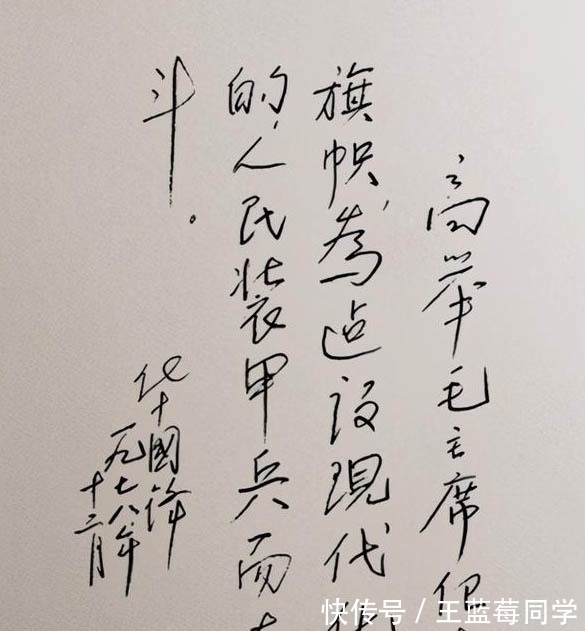 高举毛主席
旗帜，为迠设現代
的人民装甲兵而
斗。
华國锋
一九七八年
十二月
快传号/王蓝莓同学